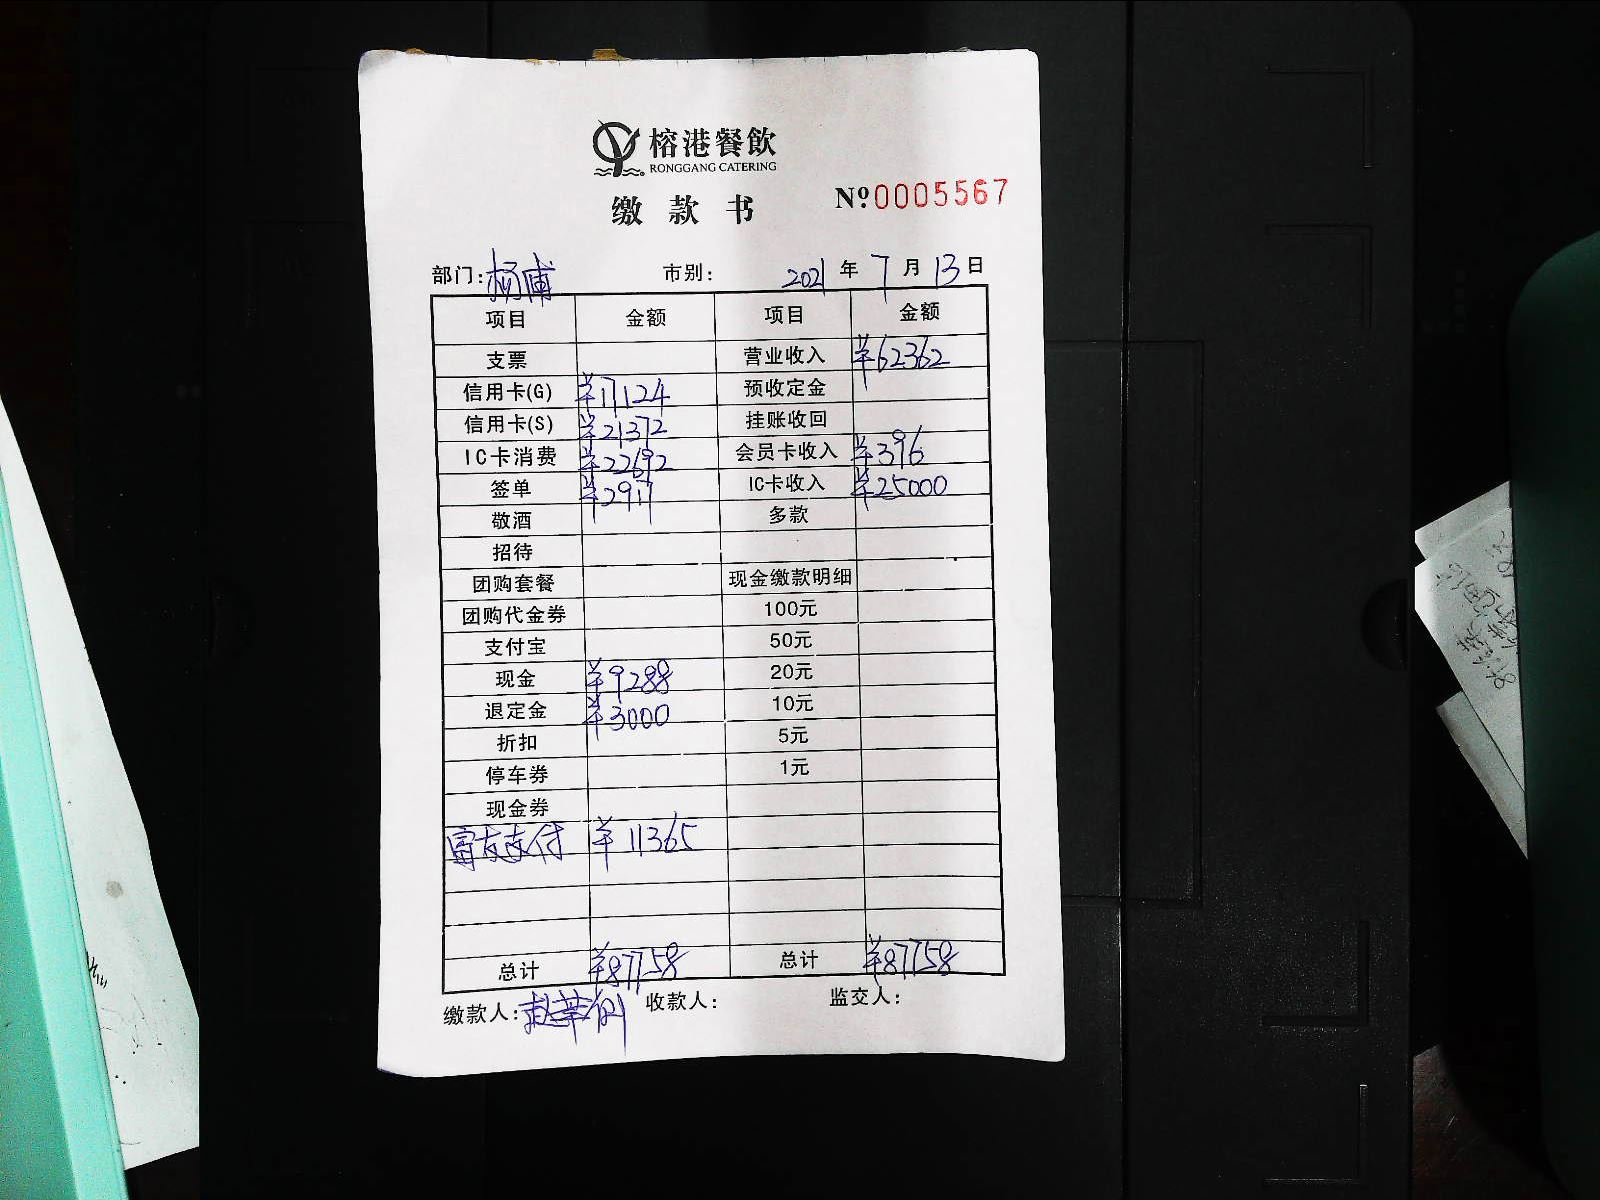 榕港餐飲
RONGGANG CATERING
缴款书 №0005567
部门: 杨浦 市别: 2021年7月13日
项目 金额 项目 金额
支票 营业收入 ¥62362
信用卡(G) ¥17124 预收定金
信用卡(S) ¥21372 挂账收回
IC卡消费 ¥22692 会员卡收入 ¥396
签单 ¥2917 IC卡收入 ¥25000
敬酒 多款
招待
团购套餐 现金缴款明细
团购代金券 100元
支付宝 50元
现金 ¥9288 20元
退定金 ¥3000 10元
折扣 5元
停车券 1元
现金券
富友支付 ¥11365
总计 ¥87758 总计 ¥87758
缴款人: 收款人: 监交人: